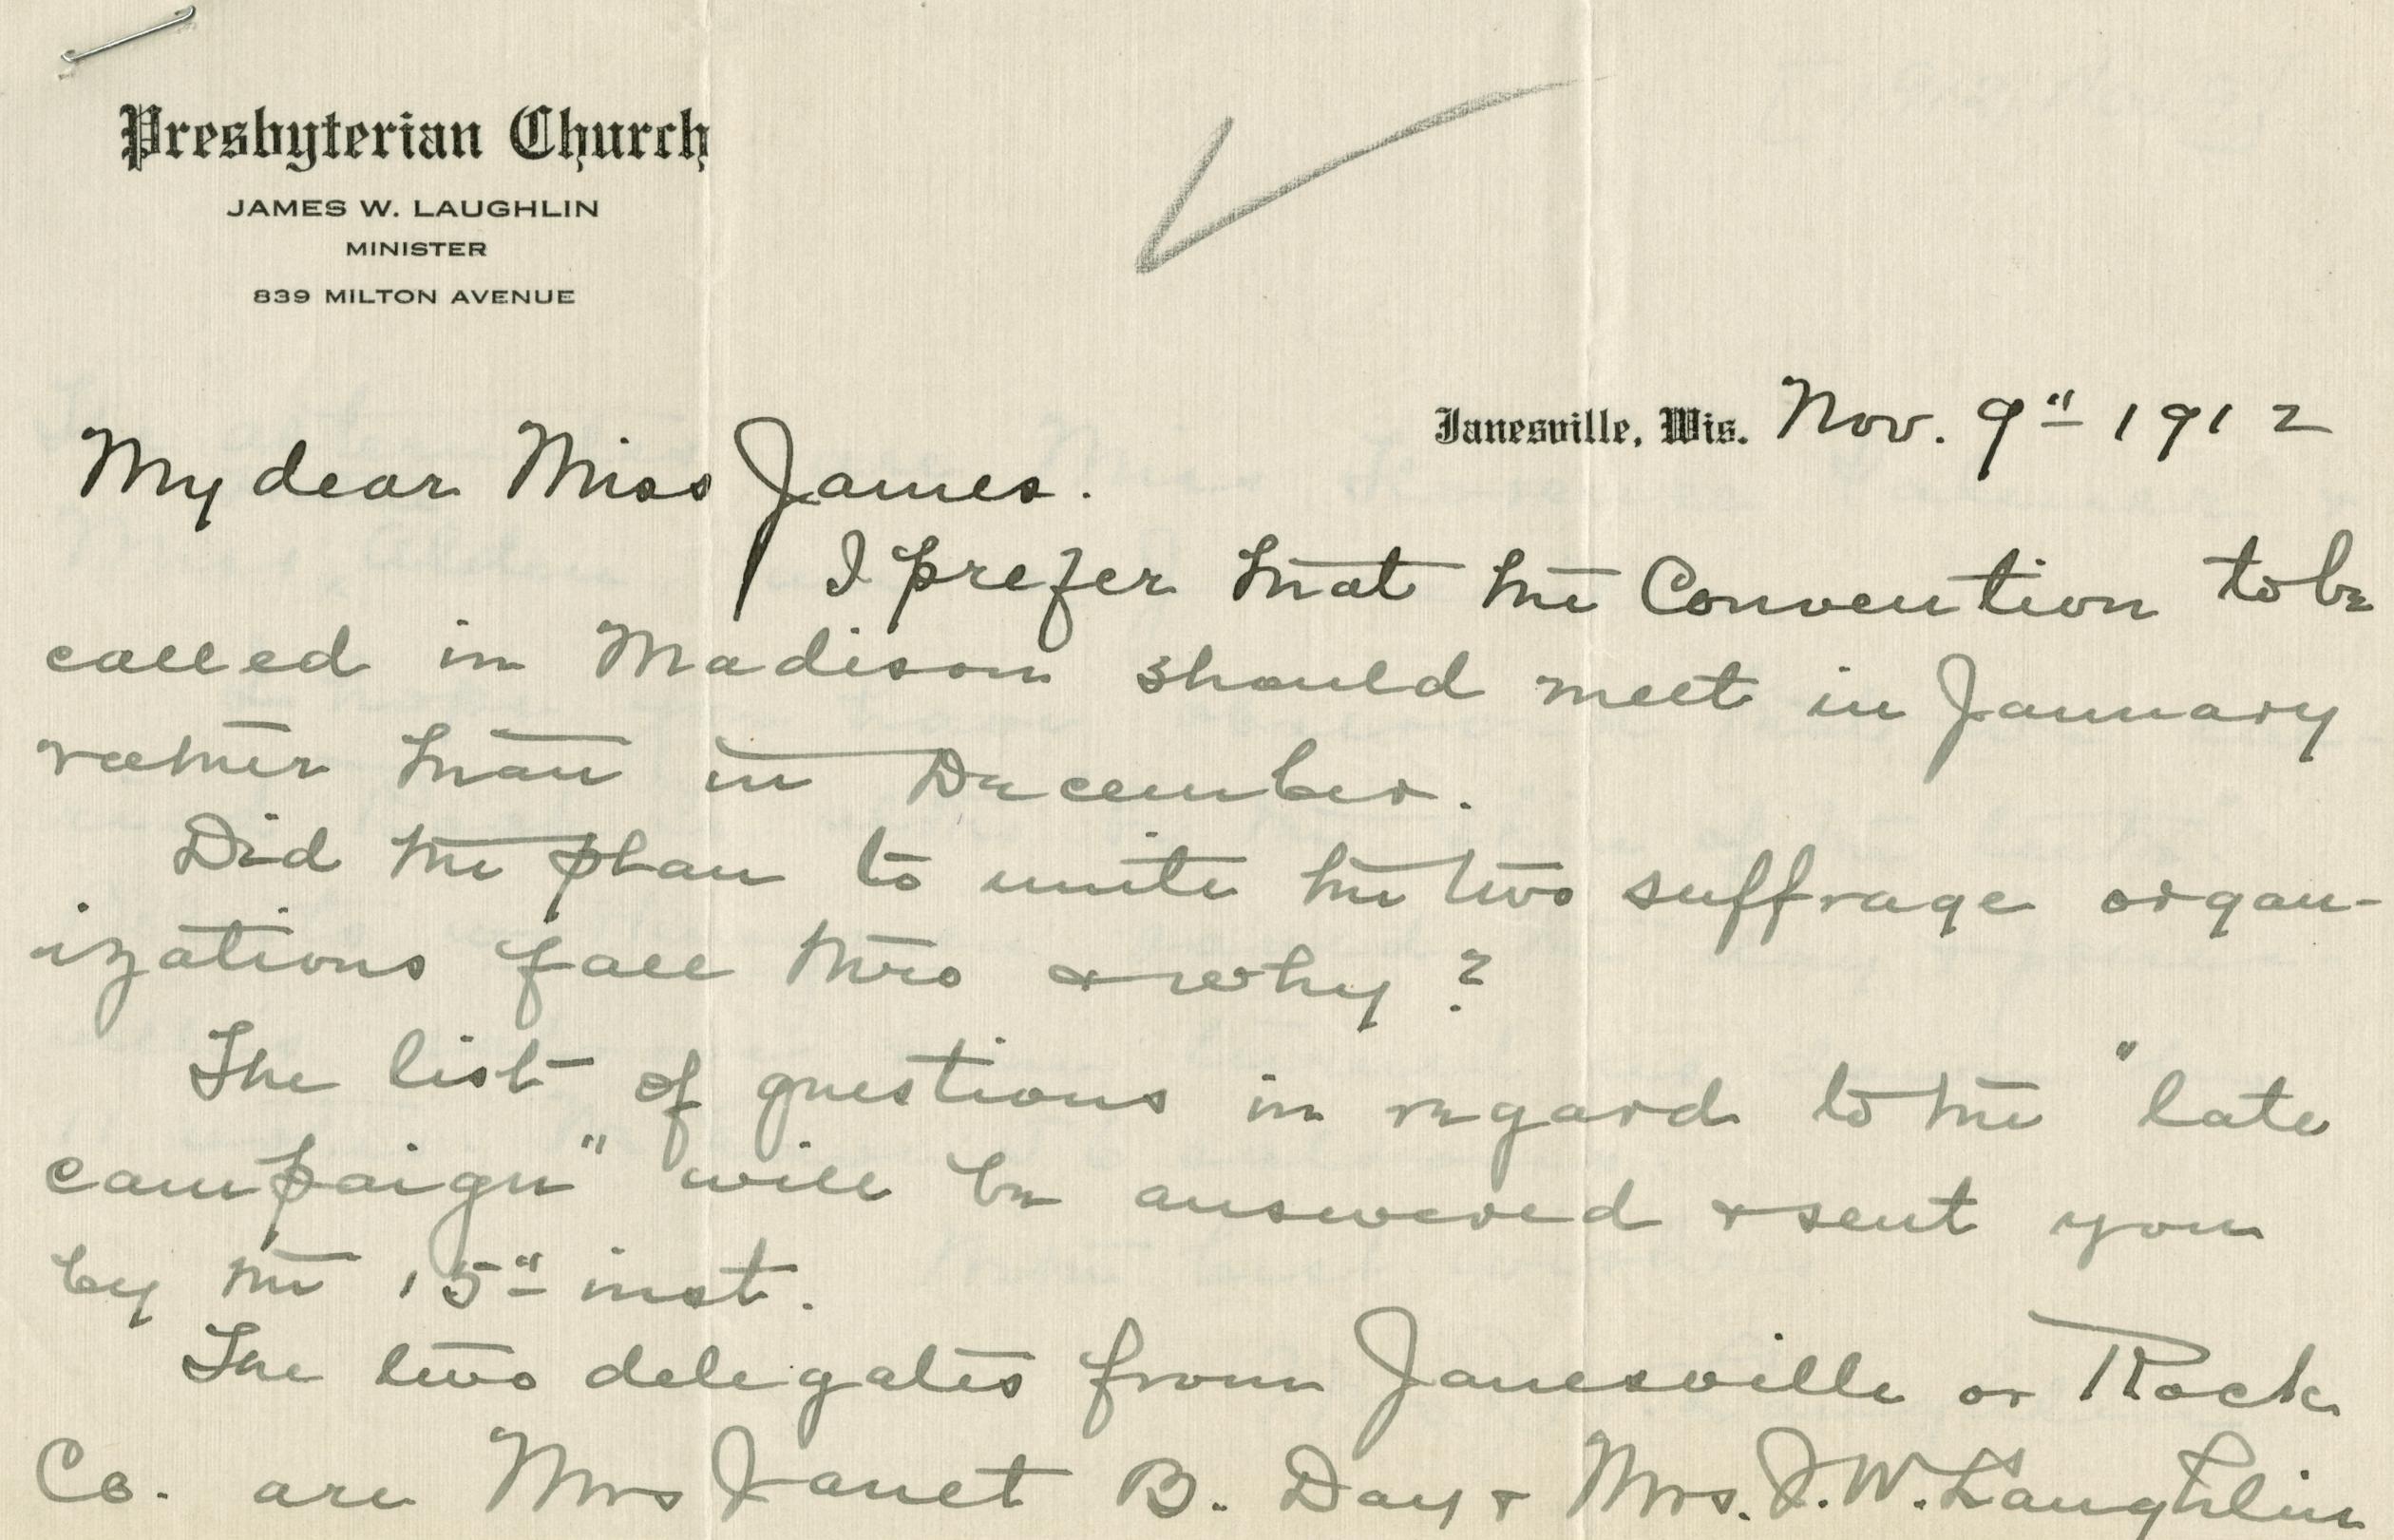 Presbyterian Church
JAMES W. LAUGHLIN
MINISTER
839 MILTON AVENUE
Janesville, Wis. Nov. 9" 1912
My dear Miss James.
I prefer that the Convention to be
called in Madison should meet in January
rather than in December.
Did the plan to unite the two suffrage organ-
izations fall thro & why?
The list of questions in regard to the "late
campaign" will be answered & sent you
by the 15" inst.
The two delegates from Janesville or Rock
Co. are Mrs Janet B. Day & Mrs. J. W. Laughlin